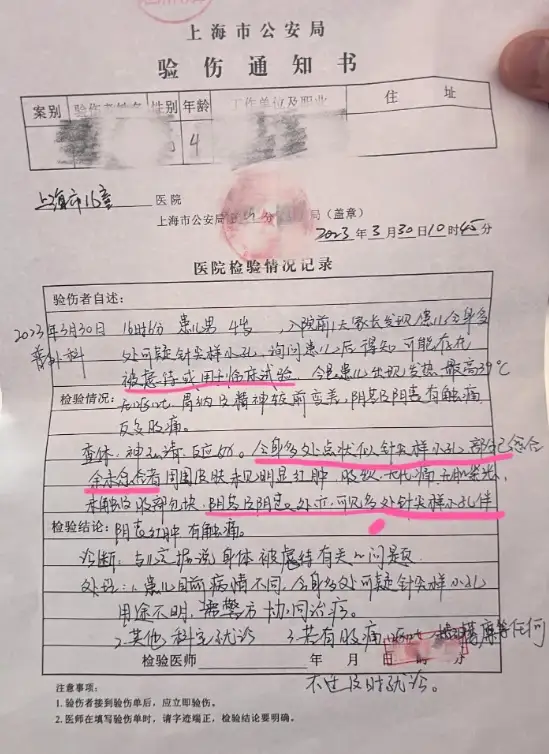 上海市公安局
验伤通知书
案别 验伤者姓名 性别 年龄 工作单位及职业 住 址
4
上海市儿童 医院
上海市公安局 分 局（盖章）
2023 年 3 月 30 日 10 时 45 分
医院检验情况记录
验伤者自述：
2023年3月30日 16时6分 患儿男 4岁 ，入院前1天家长发现患儿全身多
普外科 处可疑针尖样小孔，询问患儿后得知可能存在
被虐待或用于临床试验。今患儿出现发热，最高39℃
检验情况： 后呕吐，胃纳及精神较前变差，阴茎及阴囊有触痛，
反复腹痛。
查体：神志清，反应 。全身多处点状似针尖样小孔，部分已愈合
余未愈合者周围皮肤未见明显红肿，腹软，无压痛，
未触及腹部包块，阴茎及阴囊 处亦可见多处针尖样小孔伴
检验结论： 阴茎红肿有触痛。
诊断：与 据说身体被虐待有关的问题
处理：1.患儿目前病情不同，全身多处可疑针尖样小孔
用途不明，需警方协同治疗。
2.其他科室就诊 3.若有腹痛 等任何
检验医师 年 月
不适及时就诊。
注意事项：
1. 验伤者接到验伤单后，应立即验伤。
2. 医师在填写验伤单时，请字迹端正，检验结论要明确。